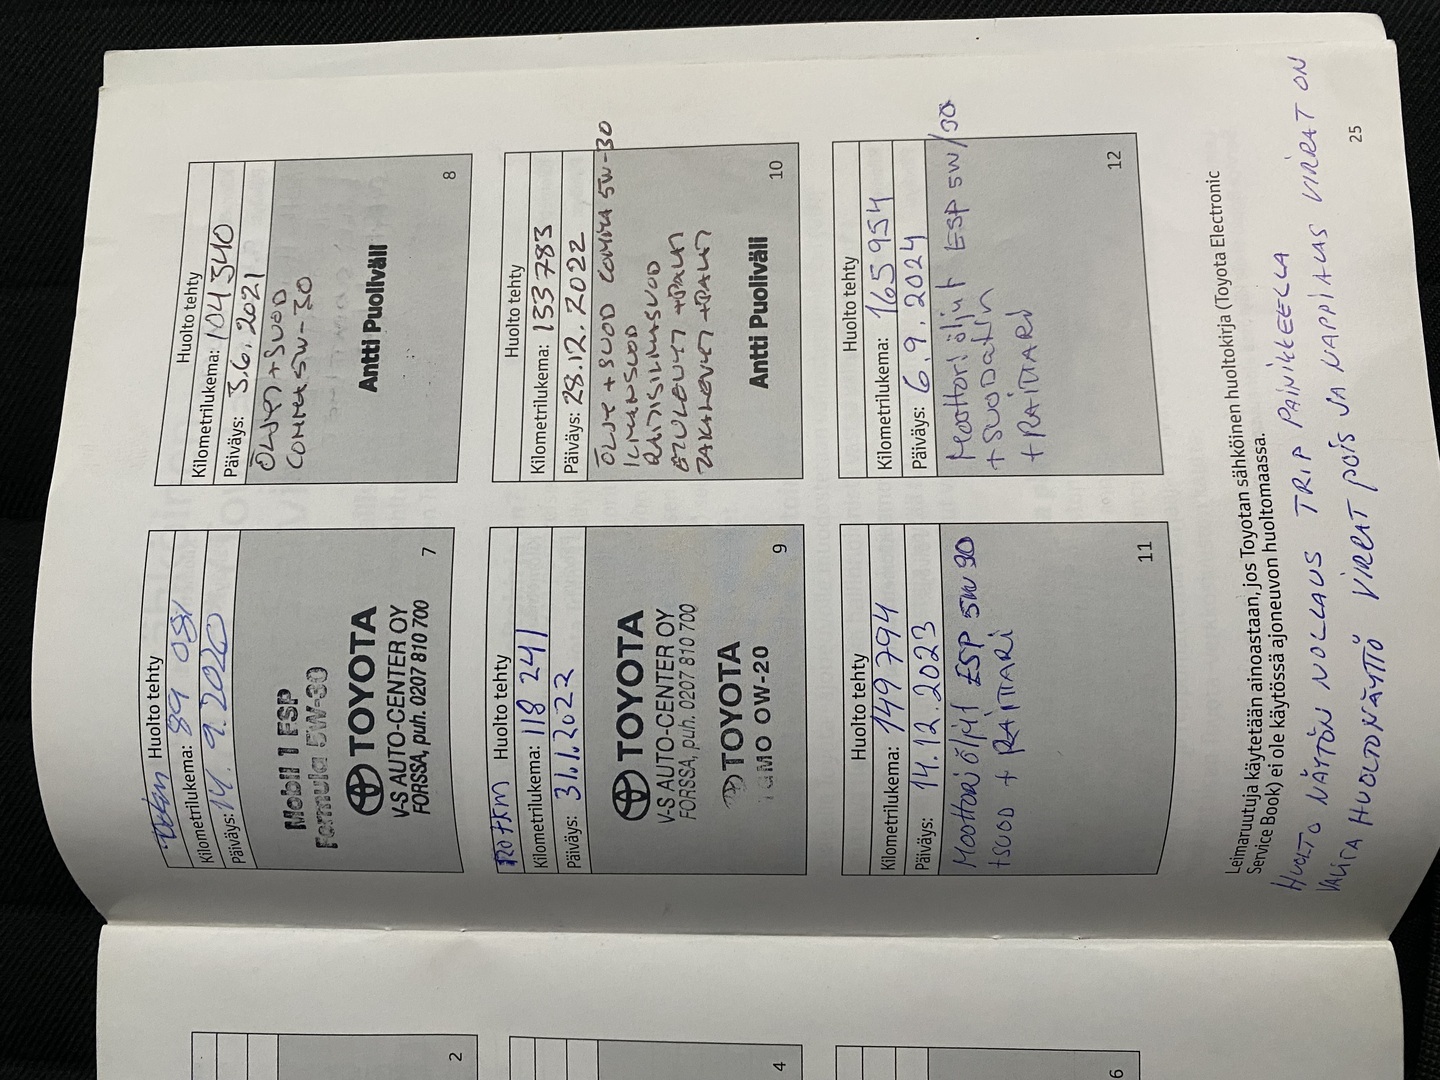 Huolto tehty
Kilometrilukema: 89 081
Päiväys: 14. 9. 2020
Mobil 1 ESP
Formula 5W-30
TOYOTA
V-S AUTO-CENTER OY
FORSSA, puh. 0207 810 700
7
Huolto tehty
Kilometrilukema: 104 340
Päiväys: 3.6.2021
ÖLJYT + SUOD
COMMA 5W-30
Antti Puoliväli
8
120 tkm Huolto tehty
Kilometrilukema: 118 241
Päiväys: 31.1.2022
TOYOTA
V-S AUTO-CENTER OY
FORSSA, puh. 0207 810 700
TOYOTA
TGMO 0W-20
9
Huolto tehty
Kilometrilukema: 133 783
Päiväys: 28.12.2022
ÖLJY + SUOD COMMA 5W-30
ILMANSUOD
RAITISILMASUOD
ETULEVYT + PALAT
TAKALEVYT + PALAT
Antti Puoliväli
10
Huolto tehty
Kilometrilukema: 149 794
Päiväys: 14.12.2023
Moottori öljyt ESP 5W30
+SUOD + RAITTARI
11
Huolto tehty
Kilometrilukema: 165 954
Päiväys: 6.9.2024
Moottori öljyt ESP 5W/30
+ SUODATIN
+ RAITTARI
12
Leimaruutuja käytetään ainoastaan, jos Toyotan sähköinen huoltokirja (Toyota Electronic
Service Book) ei ole käytössä ajoneuvon huoltomaassa.
HUOLTO NÄYTÖN NOLLAUS TRIP PAINIKEELLA
VALITA HUOLTONÄYTTÖ VIRRAT POIS JA NAPPI ALAS VIRRAT ON
25
2
4
6